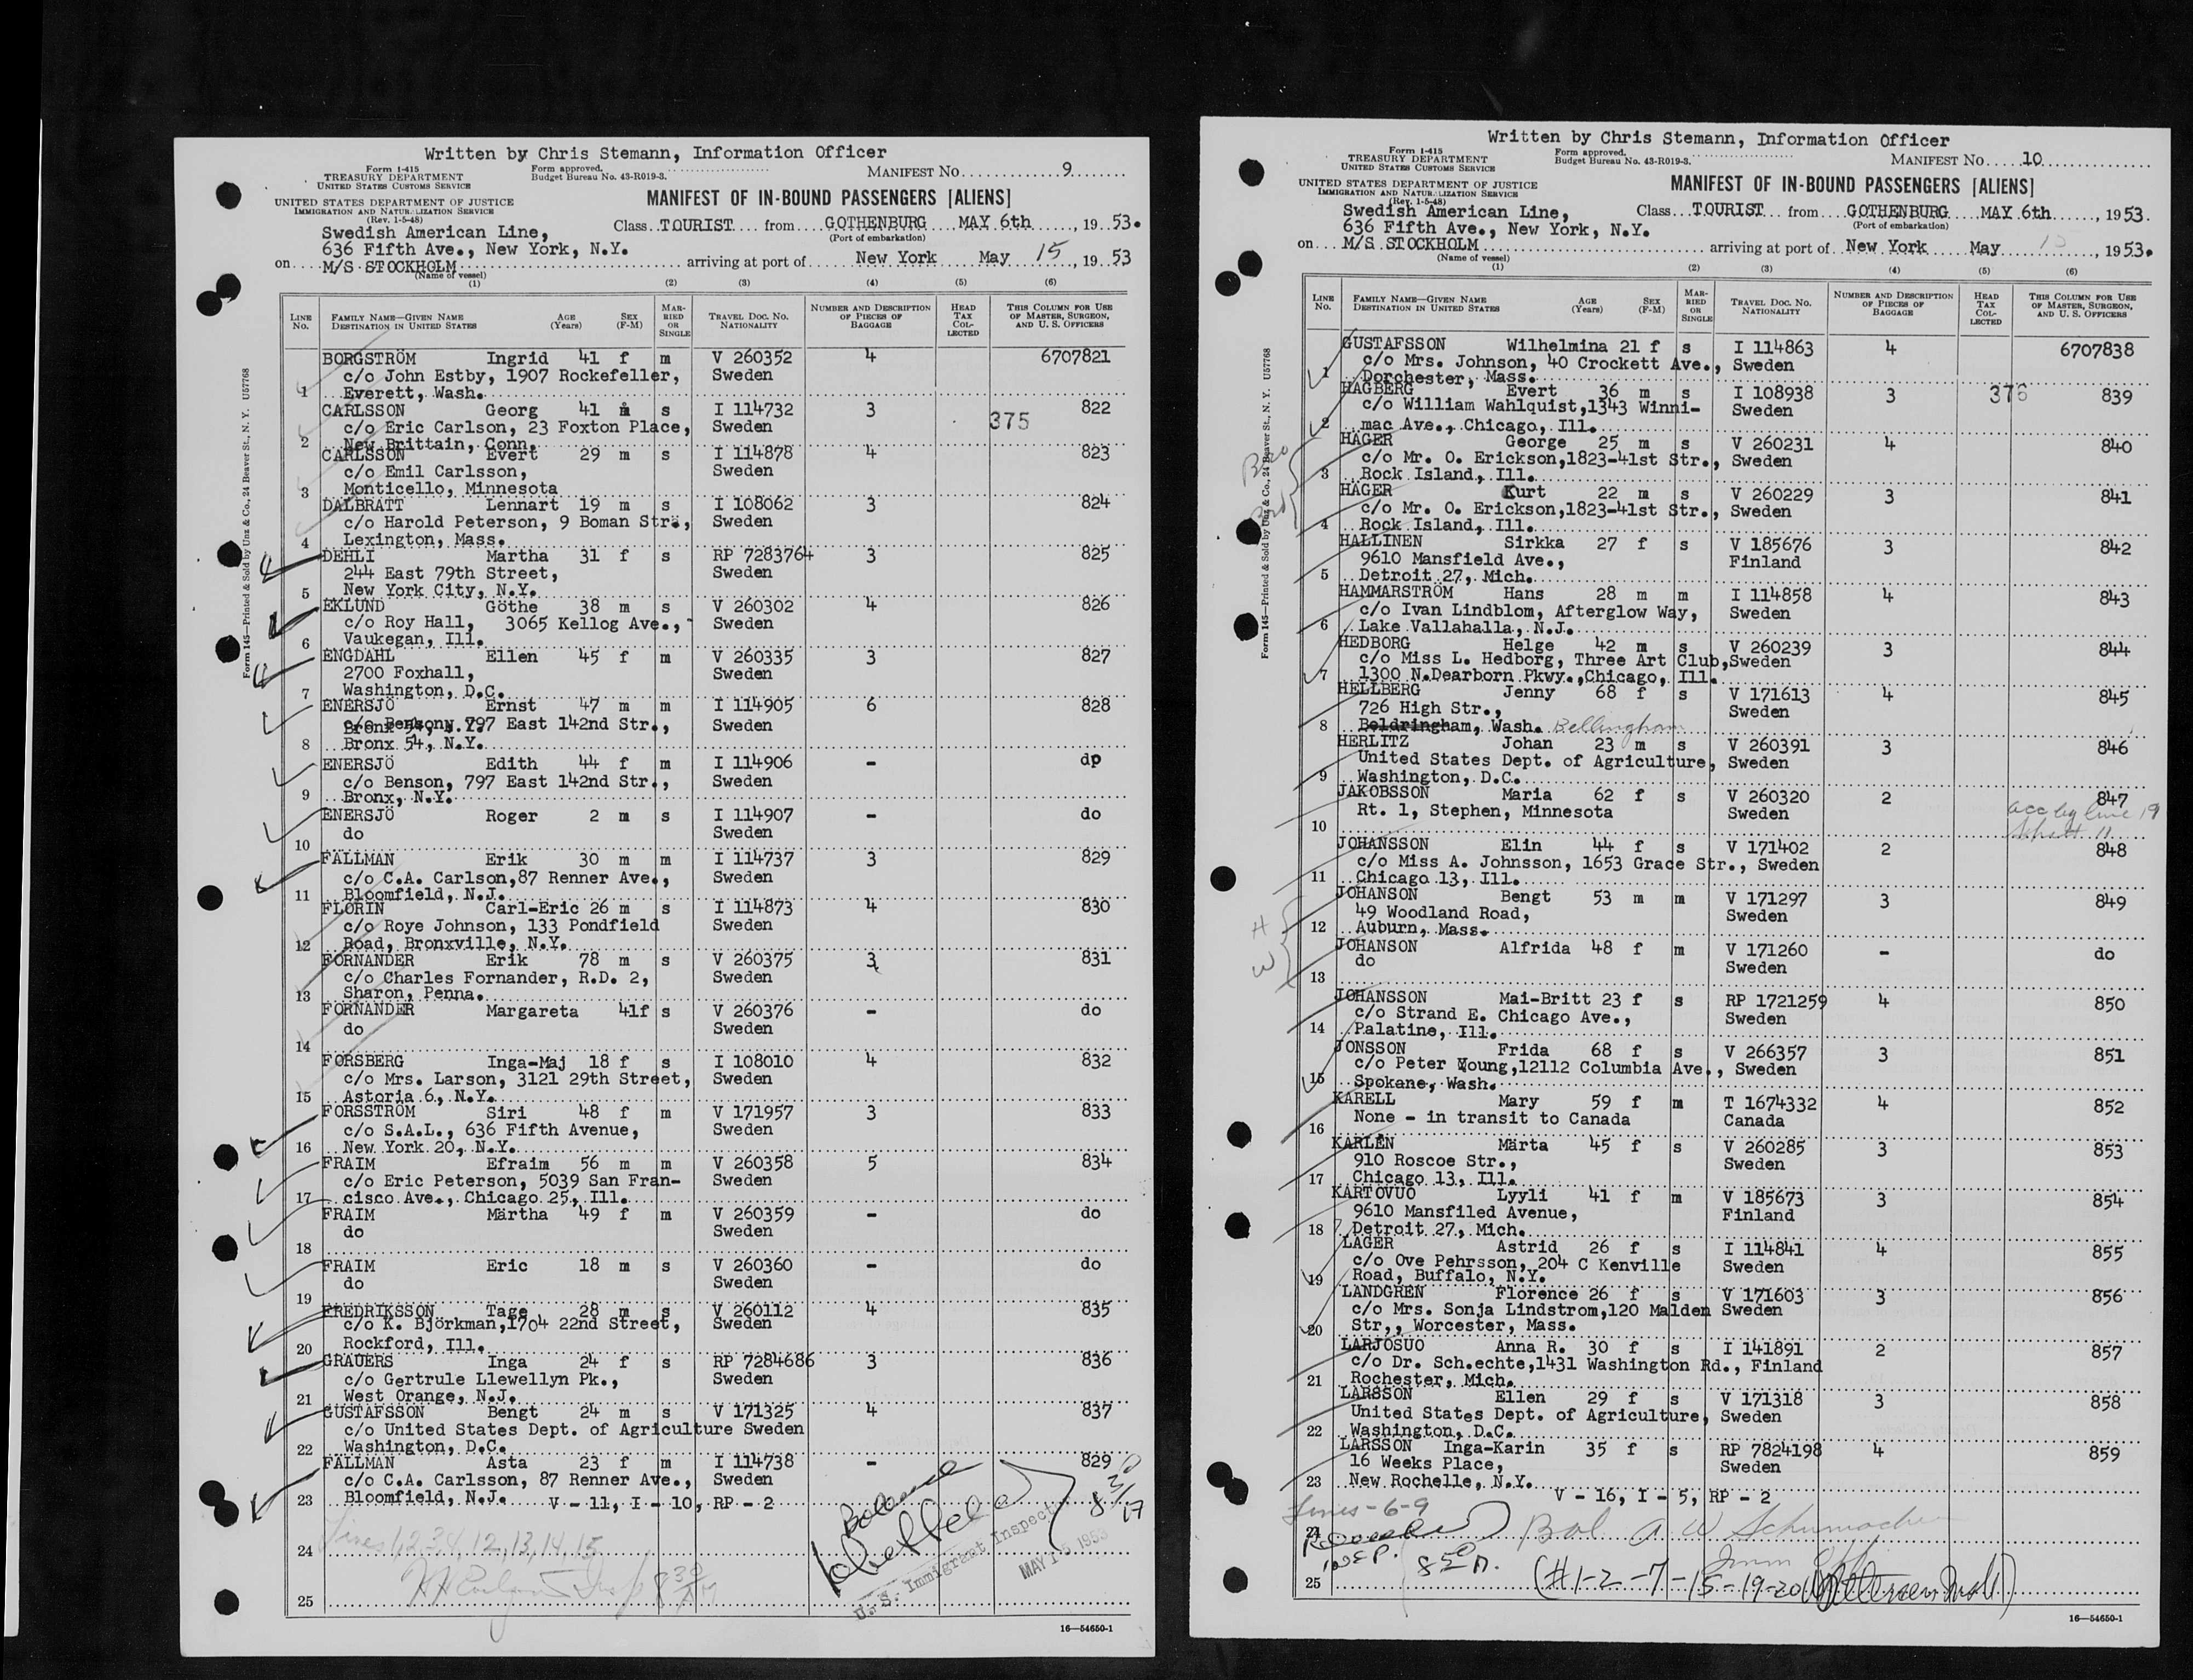 Written by Chris Stemann, Information Officer
Form I-415
TREASURY DEPARTMENT
UNITED STATES CUSTOMS SERVICE
Form approved.
Budget Bureau No. 43-R019-3.
MANIFEST No. 9
UNITED STATES DEPARTMENT OF JUSTICE
IMMIGRATION AND NATURALIZATION SERVICE
(Rev. 1-5-48)
MANIFEST OF IN-BOUND PASSENGERS [ALIENS]
Swedish American Line,
636 Fifth Ave., New York, N.Y.
Class TOURIST from GOTHENBURG MAY 6th, 1953.
(Port of embarkation)
on M/S STOCKHOLM arriving at port of New York May 15, 1953
(Name of vessel)
(1) (2) (3) (4) (5) (6)
LINE No. FAMILY NAME—GIVEN NAME DESTINATION IN UNITED STATES AGE (Years) SEX (F-M) MARRIED OR SINGLE TRAVEL DOC. NO. NATIONALITY NUMBER AND DESCRIPTION OF PIECES OF BAGGAGE HEAD TAX COLLECTED THIS COLUMN FOR USE OF MASTER, SURGEON, AND U. S. OFFICERS
BORGSTRÖM Ingrid 41 f m V 260352 4 6707821
c/o John Estby, 1907 Rockefeller, Sweden
1 Everett, Wash.
CARLSSON Georg 41 m s I 114732 3 822
c/o Eric Carlson, 23 Foxton Place, Sweden 375
2 New Brittain, Conn.
CARLSSON Evert 29 m s I 114878 4 823
c/o Emil Carlsson, Sweden
3 Monticello, Minnesota
DALBRATT Lennart 19 m s I 108062 3 824
c/o Harold Peterson, 9 Boman Str., Sweden
4 Lexington, Mass.
DEHLI Martha 31 f s RP 7283764 3 825
244 East 79th Street, Sweden
5 New York City, N.Y.
EKLUND Göthe 38 m s V 260302 4 826
c/o Roy Hall, 3065 Kellog Ave., Sweden
6 Vaukegan, Ill.
ENGDAHL Ellen 45 f m V 260335 3 827
2700 Foxhall, Sweden
7 Washington, D.C.
ENERSJÖ Ernst 47 m m I 114905 6 828
c/o Benson, 797 East 142nd Str., Sweden
8 Bronx 54, N.Y.
ENERSJÖ Edith 44 f m I 114906 - do
c/o Benson, 797 East 142nd Str., Sweden
9 Bronx, N.Y.
ENERSJÖ Roger 2 m s I 114907 - do
do Sweden
10
FÄLLMAN Erik 30 m m I 114737 3 829
c/o C.A. Carlson,87 Renner Ave., Sweden
11 Bloomfield, N.J.
FLORIN Carl-Eric 26 m s I 114873 4 830
c/o Roye Johnson, 133 Pondfield Sweden
12 Road, Bronxville, N.Y.
FORNANDER Erik 78 m s V 260375 3 831
c/o Charles Fornander, R.D. 2, Sweden
13 Sharon, Penna.
FORNANDER Margareta 41f s V 260376 - do
do Sweden
14
FORSBERG Inga-Maj 18 f s I 108010 4 832
c/o Mrs. Larson, 3121 29th Street, Sweden
15 Astoria 6, N.Y.
FORSSTRÖM Siri 48 f m V 171957 3 833
c/o S.A.L., 636 Fifth Avenue, Sweden
16 New York 20, N.Y.
FRAIM Efraim 56 m m V 260358 5 834
c/o Eric Peterson, 5039 San Fran- Sweden
17 cisco Ave., Chicago 25, Ill.
FRAIM Märtha 49 f m V 260359 - do
do Sweden
18
FRAIM Eric 18 m s V 260360 - do
do Sweden
19
FREDRIKSSON Tage 28 m s V 260112 4 835
c/o K. Björkman,1704 22nd Street, Sweden
20 Rockford, Ill.
GRAUERS Inga 24 f s RP 7284686 3 836
c/o Gertrule Llewellyn Pk., Sweden
21 West Orange, N.J.
GUSTAFSSON Bengt 24 m s V 171325 4 837
c/o United States Dept. of Agriculture Sweden
22 Washington, D.C.
FÄLLMAN Asta 23 f m I 114738 - 829
c/o C.A. Carlsson, 87 Renner Ave., Sweden
23 Bloomfield, N.J. V - 11, I - 10, RP - 2
Lines 1,2,3,4,12,13,14,15
24
Balance
U. S. Immigrant Inspector
MAY 15 1953
25
16—54650-1
Form 145—Printed & Sold by Unz & Co., 24 Beaver St., N. Y. U57768
Written by Chris Stemann, Information Officer
Form I-415
TREASURY DEPARTMENT
UNITED STATES CUSTOMS SERVICE
Form approved.
Budget Bureau No. 43-R019-3.
MANIFEST No. 10
UNITED STATES DEPARTMENT OF JUSTICE
IMMIGRATION AND NATURALIZATION SERVICE
(Rev. 1-5-48)
MANIFEST OF IN-BOUND PASSENGERS [ALIENS]
Swedish American Line,
636 Fifth Ave., New York, N.Y.
Class TOURIST from GOTHENBURG MAY 6th, 1953.
(Port of embarkation)
on M/S STOCKHOLM arriving at port of New York May 15, 1953.
(Name of vessel)
(1) (2) (3) (4) (5) (6)
LINE No. FAMILY NAME—GIVEN NAME DESTINATION IN UNITED STATES AGE (Years) SEX (F-M) MARRIED OR SINGLE TRAVEL DOC. NO. NATIONALITY NUMBER AND DESCRIPTION OF PIECES OF BAGGAGE HEAD TAX COLLECTED THIS COLUMN FOR USE OF MASTER, SURGEON, AND U. S. OFFICERS
GUSTAFSSON Wilhelmina 21 f s I 114863 4 6707838
c/o Mrs. Johnson, 40 Crockett Ave., Sweden
1 Dorchester, Mass.
HAGBERG Evert 36 m s I 108938 3 376 839
c/o William Wahlquist,1343 Winni- Sweden
2 mac Ave., Chicago, Ill.
HAGER George 25 m s V 260231 4 840
c/o Mr. O. Erickson,1823-41st Str., Sweden
3 Rock Island, Ill.
HAGER Kurt 22 m s V 260229 3 841
c/o Mr. O. Erickson,1823-41st Str., Sweden
4 Rock Island, Ill.
HALLINEN Sirkka 27 f s V 185676 3 842
9610 Mansfield Ave., Finland
5 Detroit 27, Mich.
HAMMARSTRÖM Hans 28 m m I 114858 4 843
c/o Ivan Lindblom, Afterglow Way, Sweden
6 Lake Vallahalla, N.J.
HEDBORG Helge 42 m s V 260239 3 844
c/o Miss L. Hedborg, Three Art Club, Sweden
7 1300 N.Dearborn Pkwy.,Chicago, Ill.
HELLBERG Jenny 68 f s V 171613 4 845
726 High Str., Sweden
8 Beldringham, Wash. Bellingham
HERLITZ Johan 23 m s V 260391 3 846
United States Dept. of Agriculture, Sweden
9 Washington, D.C.
JAKOBSSON Maria 62 f s V 260320 2 847
Rt. 1, Stephen, Minnesota Sweden acc by line 19
10 sheet 11
JOHANSSON Elin 44 f s V 171402 2 848
c/o Miss A. Johnsson, 1653 Grace Str., Sweden
11 Chicago 13, Ill.
JOHANSON Bengt 53 m m V 171297 3 849
49 Woodland Road, Sweden
12 Auburn, Mass.
H
W
JOHANSON Alfrida 48 f m V 171260 - do
do Sweden
13
JOHANSSON Mai-Britt 23 f s RP 1721259 4 850
c/o Strand E. Chicago Ave., Sweden
14 Palatine, Ill.
JONSSON Frida 68 f s V 266357 3 851
c/o Peter Young,12112 Columbia Ave., Sweden
15 Spokane, Wash.
KARELL Mary 59 f m T 1674332 4 852
None - in transit to Canada Canada
16
KARLÉN Märta 45 f s V 260285 3 853
910 Roscoe Str., Sweden
17 Chicago 13, Ill.
KARTOVUO Lyyli 41 f m V 185673 3 854
9610 Mansfiled Avenue, Finland
18 Detroit 27, Mich.
LAGER Astrid 26 f s I 114841 4 855
c/o Ove Pehrsson, 204 C Kenville Sweden
19 Road, Buffalo, N.Y.
LANDGREN Florence 26 f s V 171603 3 856
c/o Mrs. Sonja Lindstrom,120 Malden Sweden
20 Str,, Worcester, Mass.
LARJOSUO Anna R. 30 f s I 141891 2 857
c/o Dr. Sch.echte,1431 Washington Rd., Finland
21 Rochester, Mich.
LARSSON Ellen 29 f s V 171318 3 858
United States Dept. of Agriculture, Sweden
22 Washington, D.C.
LARSSON Inga-Karin 35 f s RP 7824198 4 859
16 Weeks Place, Sweden
23 New Rochelle, N.Y.
V - 16, I - 5, RP - 2
Lines - 6-9
24 Bal A W Schumacher
25 (#1-2-7-15-19-20
16—54650-1
Form 145—Printed & Sold by Unz & Co., 24 Beaver St., N. Y. U57768